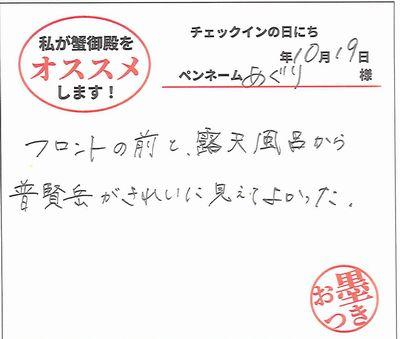 私が蟹御殿を
オススメ
します！
チェックインの日にち
年10月19日
ペンネームめぐり様
フロントの前と、露天風呂から
普賢岳がきれいに見えてよかった。
お墨つき